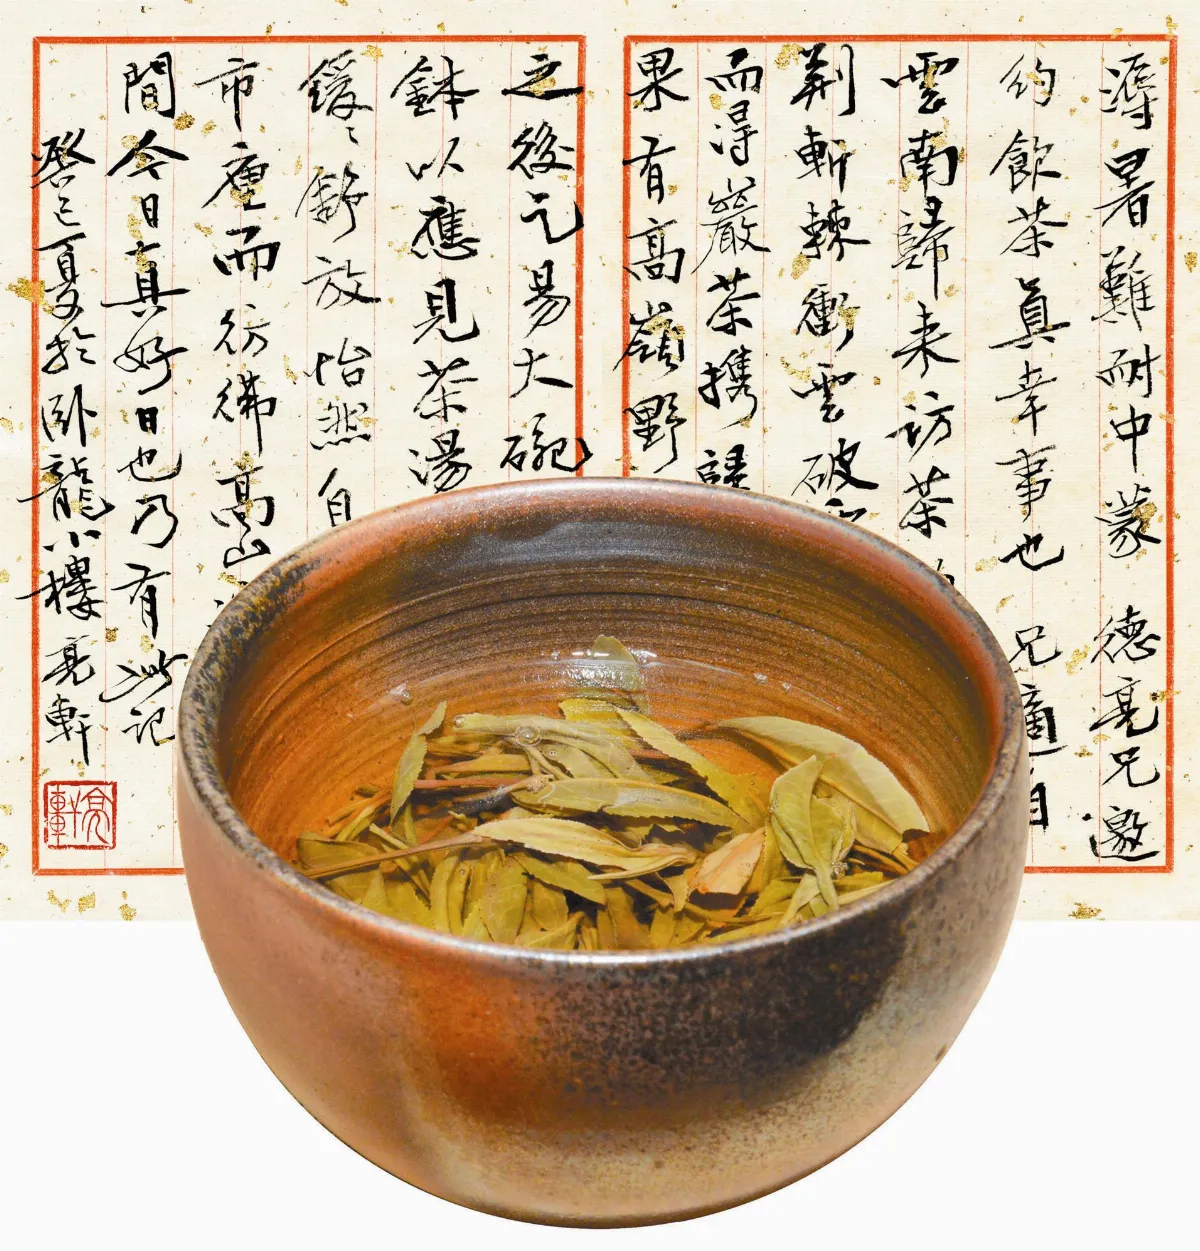 溽暑難耐中蒙 德亮兄邀
約飲茶真幸事也 兄適自
雲南歸來訪茶
荆斬棘衝雲破
而得巖茶攜歸
果有高嶺野
之後乞易大碗
鉢以應見茶湯
緩ミ舒放怡然自
市廛而彷彿高山
間今日真好日也乃有此記
癸巳夏於臥龍小樓亮軒
亮軒